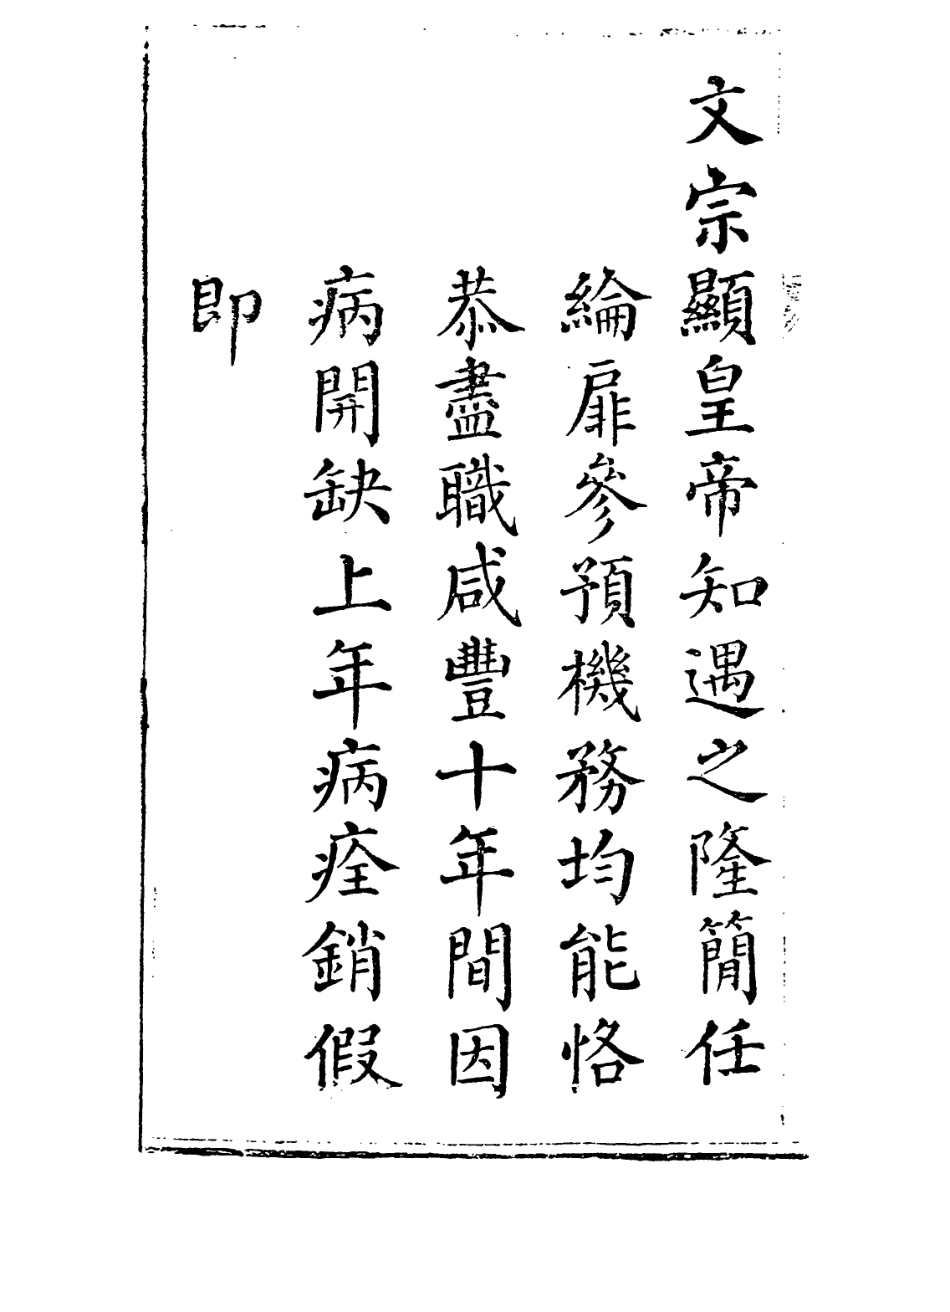 文宗顯皇帝知遇之隆簡任
綸扉參預機務均能恪
恭盡職咸豐十年間因
病開缺上年病痊銷假
即